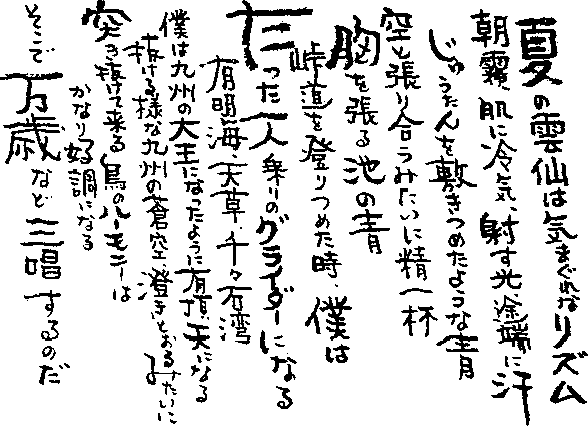 夏の雲仙は気まぐれなリズム
朝霧、肌に冷気、射す光途端に汗
じゅうたんを敷きつめたような青
空と張り合うみたいに精一杯
胸を張る池の青
峠道を登りつめた時、僕は
たった一人乗りのグライダーになる
有明海、天草、千々石湾
僕は九州の大王になったように有頂天になる
抜ける様な九州の蒼空、澄きとおるみたいに
突き抜けて来る鳥のハーモニーは
かなり好調になる
そこで万歳など三唱するのだ